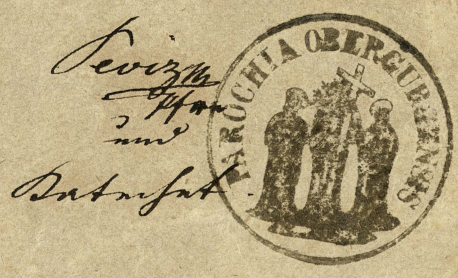 Pfrr
und
Katechet.
PAROCHIA OBERGURKENSIS